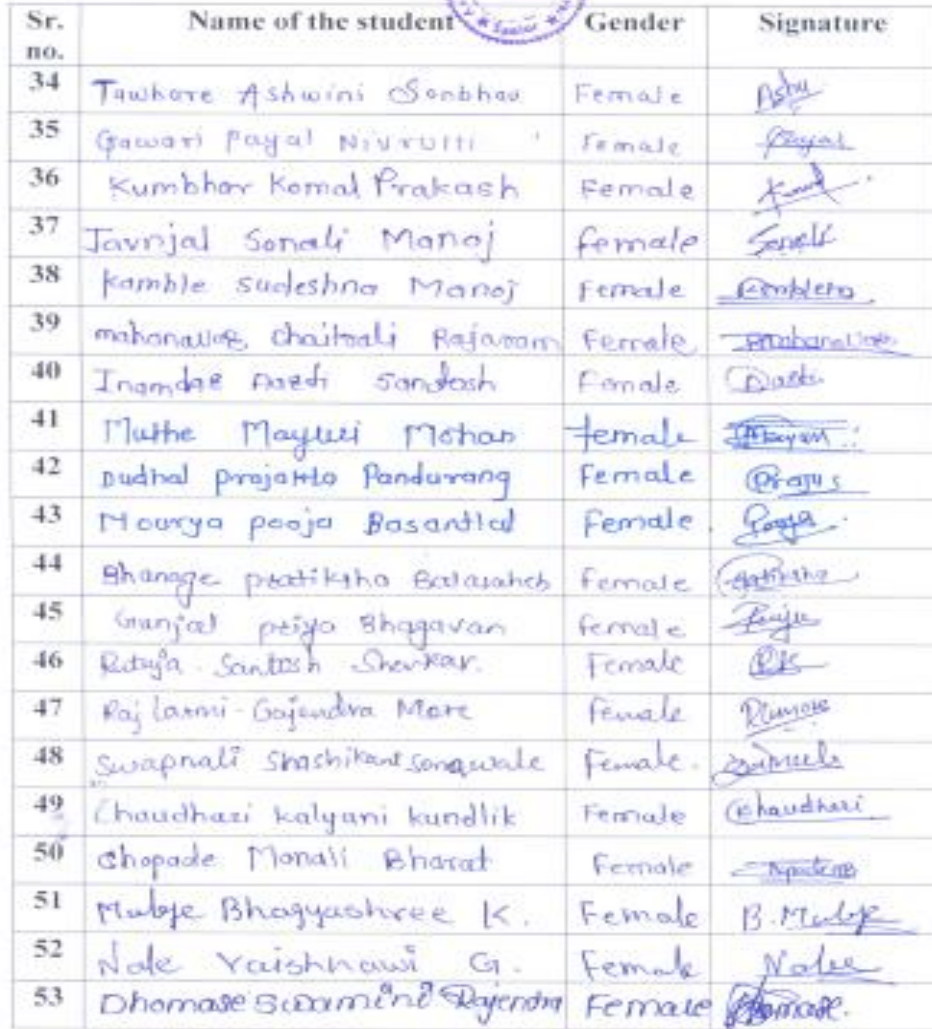 Senior
Sr. no. Name of the student Gender Signature
34 Tawhare Ashwini Sonbhau Female Ashu
35 Gawari Payal Nivrutti Female Payal
36 Kumbhar Komal Prakash Female
37 Javnjal Sonali Manoj female Sonali
38 Kamble Sudeshna Manoj Female
39 Chaitrali Rajaram Female
40 Inamdar Aarti Santosh Female Aarti
41 Muthe Mayuri Mohan female
42 Dudhal prajakta Pandurang Female
43 Mourya pooja Basantlal Female. Pooja
44 Bhanage pratiksha Balasaheb Female
45 Gunjal priya Bhagavan female
46 Rutuja Santosh Shevkar. Female
47 Raj laxmi Gajendra More female
48 Swapnali Shashikant Sonawale Female.
49 Chaudhari kalyani kundlik Female Chaudhari
50 Chopade Monali Bharat Female
51 Bhagyashree K. Female B.
52 Nale Vaishnawi G. Female Nale
53 Dhomase Swamini Rajendra Female